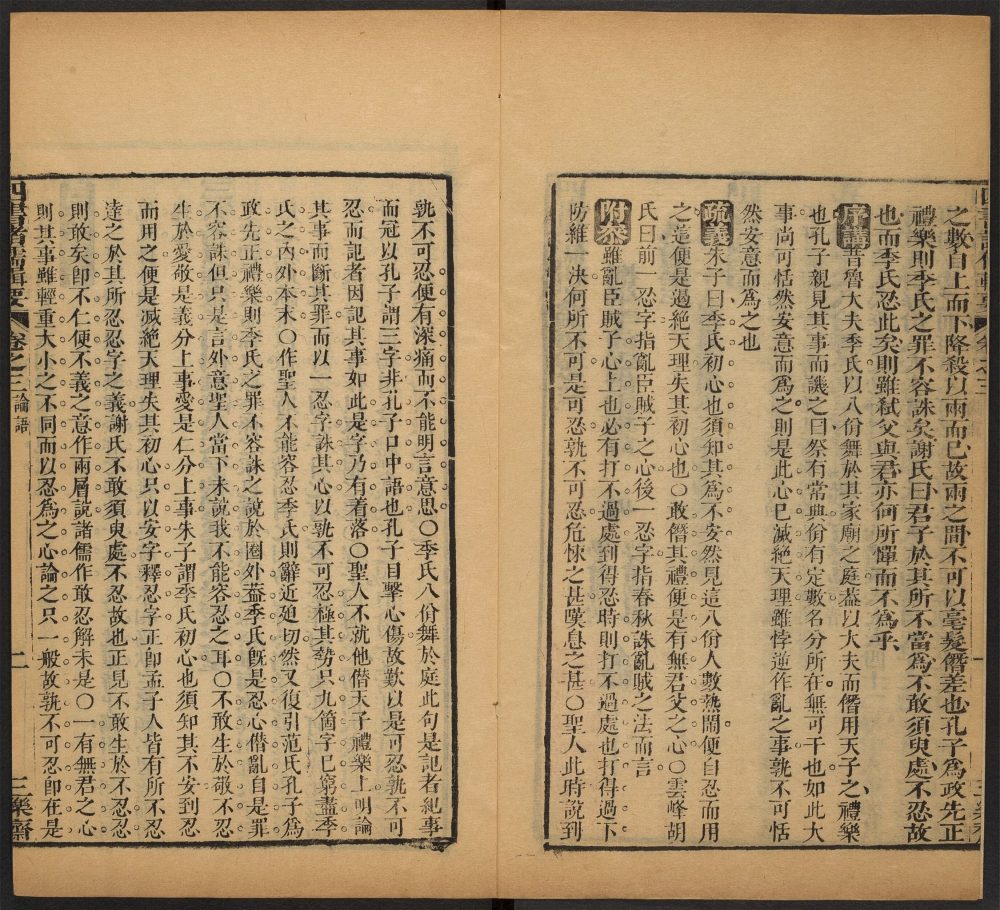 之數自上而下降殺以兩而已故兩之間不可以毫髮僭差也孔子為政先正
禮樂則季氏之罪不容誅矣謝氏曰君子於其所不當為不敢須臾處不忍故
也而季氏忍此矣則雖弒父與君亦何所憚而不為乎
序講昔魯大夫季氏以八佾舞於其家廟之庭蓋以大夫而僭用天子之禮樂
也孔子親見其事而譏之曰祭有常典佾有定數名分所在無可干也如此大
事尚可恬然安意而為之則是此心已滅絕天理雖悖逆作亂之事孰不可恬
然安意而為之也
疏義朱子曰季氏初心也須知其為不安然見這八佾人數熱鬧便自忍而用
之這便是遏絕天理失其初心也○敢僭其禮便是有無君父之心○雲峰胡
氏曰前一忍字指亂臣賊子之心後一忍字指春秋誅亂賊之法而言
附參雖亂臣賊子心上也必有打不過處到得忍時則打不過處也打得過下
防維一決何所不可是可忍孰不可忍危悚之甚嘆息之甚○聖人此時說到
孰不可忍便有深痛而不能明言意思○季氏八佾舞於庭此句是記者紀事
而冠以孔子謂三字非孔子口中語也孔子目擊心傷故歎以是可忍孰不可
忍而記者因記其事如此是字乃有着落○聖人不就他僭天子禮樂上明論
其事而斷其罪而以一忍字誅其心以孰不可忍極其勢只九箇字已窮盡季
氏之內外本末○作聖人不能容忍季氏則辭近廹切然又復引范氏孔子為
政先正禮樂則季氏之罪不容誅之說於圈外葢季氏旣是忍心僭亂自是罪
不容誅但只是言外意聖人當下未說我不能容忍之耳○不敢生於敬不忍
生於愛敬是義分上事愛是仁分上事朱子謂季氏初心也須知其不安到忍
而用之便是滅絕天理失其初心只以安字釋忍字正卽孟子人皆有所不忍
達之於其所忍忍字之義謝氏不敢須臾處不忍故也正見不敢生於不忍忍
則敢矣卽不仁便不義之意作兩層說諸儒作敢忍解未是○一有無君之心
則其事雖輕重大小之不同而以忍為之心論之只一般故孰不可忍卽在是
四書諸儒輯要 卷之三 論語 二 三樂齋